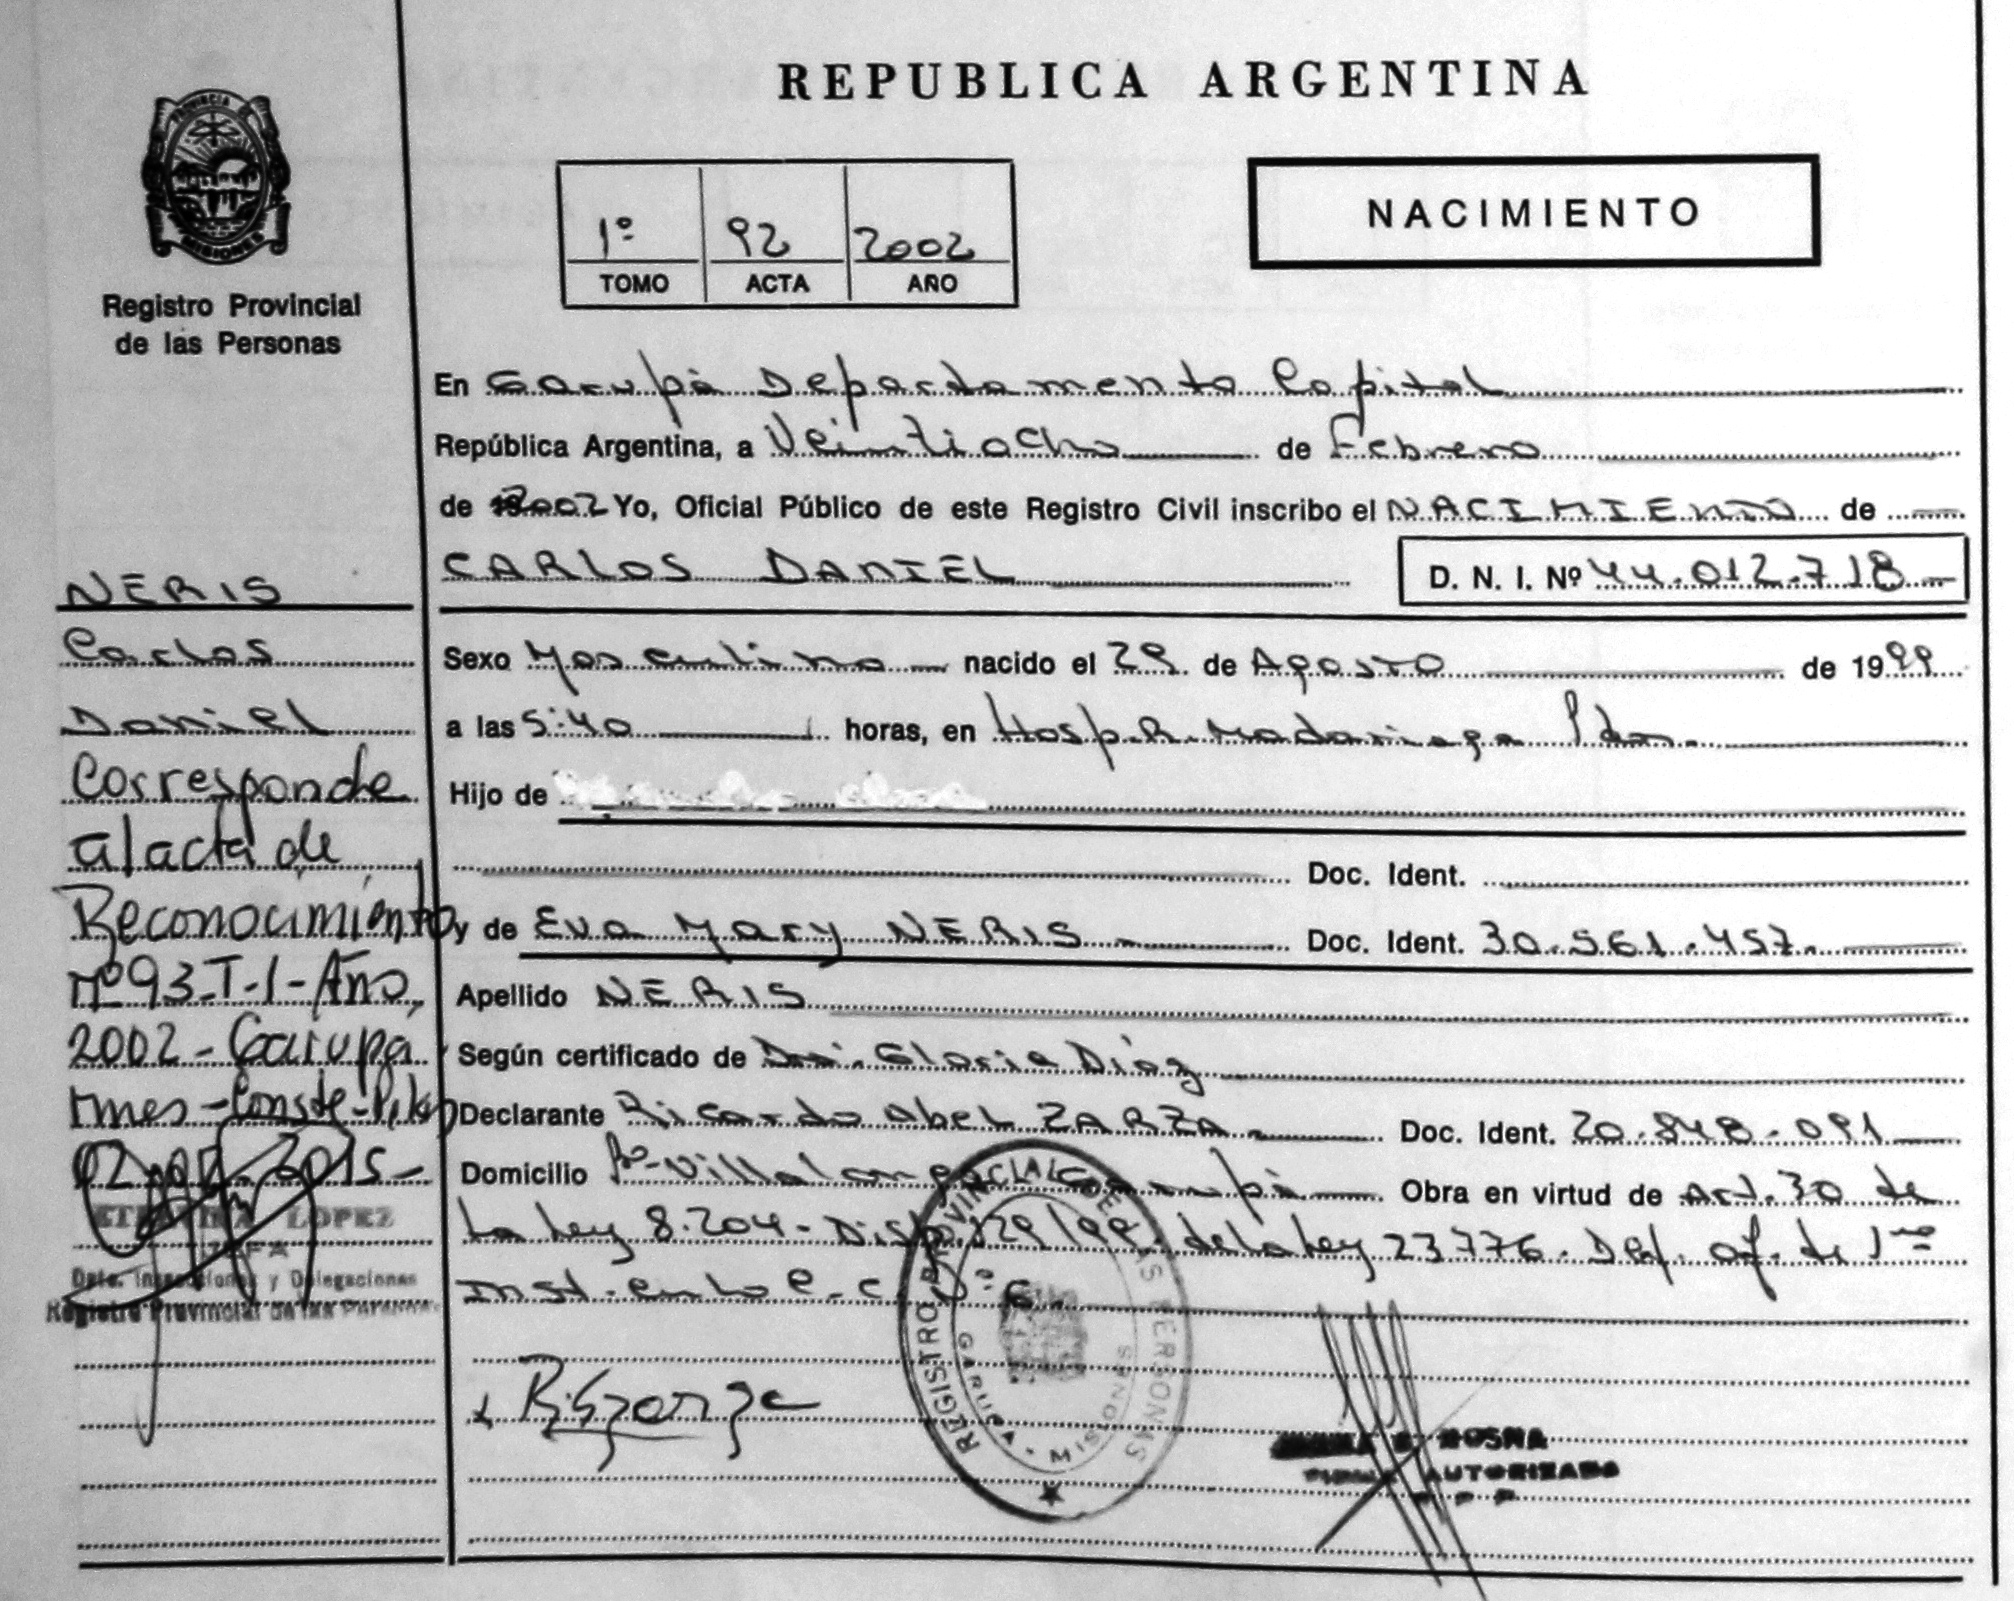 REPUBLICA ARGENTINA
PROVINCIA DE
MISIONES
Registro Provincial
de las Personas
1º 92 2002
TOMO ACTA AÑO
NACIMIENTO
En Garupá Departamento Capital
República Argentina, a Veintiocho de Febrero
de 2002 Yo, Oficial Público de este Registro Civil inscribo el NACIMIENTO de
CARLOS DANIEL D. N. I. Nº 44.012.718
Sexo Masculino nacido el 29 de Agosto de 1999
a las 5:40 horas, en Hosp. R. Madariaga Pdas.
Hijo de
Doc. Ident.
y de Eva Mary NERIS Doc. Ident. 30.561.457.
Apellido NERIS
Según certificado de Dra. Gloria Díaz
Declarante Ricardo Abel ZARZA Doc. Ident. 20.848.091
Domicilio Bº Villalonga Garupá Obra en virtud de Art. 30 de
La Ley 8.204 - Disp. 129/99. de la Ley 23776. Def. of. de 1ra
Inst. en lo C. C. Nº 6.
NERIS
Carlos
Daniel
Corresponde
al acta de
Reconocimiento
Nº 93-T-1-Año
2002 - Garupá
Mnes - Conste -
2015-
LOPEZ
JEFA
Dpto. Inspecciones y Delegaciones
Registro Provincial de las Personas
REGISTRO PROVINCIAL DE LAS PERSONAS
GARUPA - MISIONES
MOSNA
FIRMA AUTORIZADA